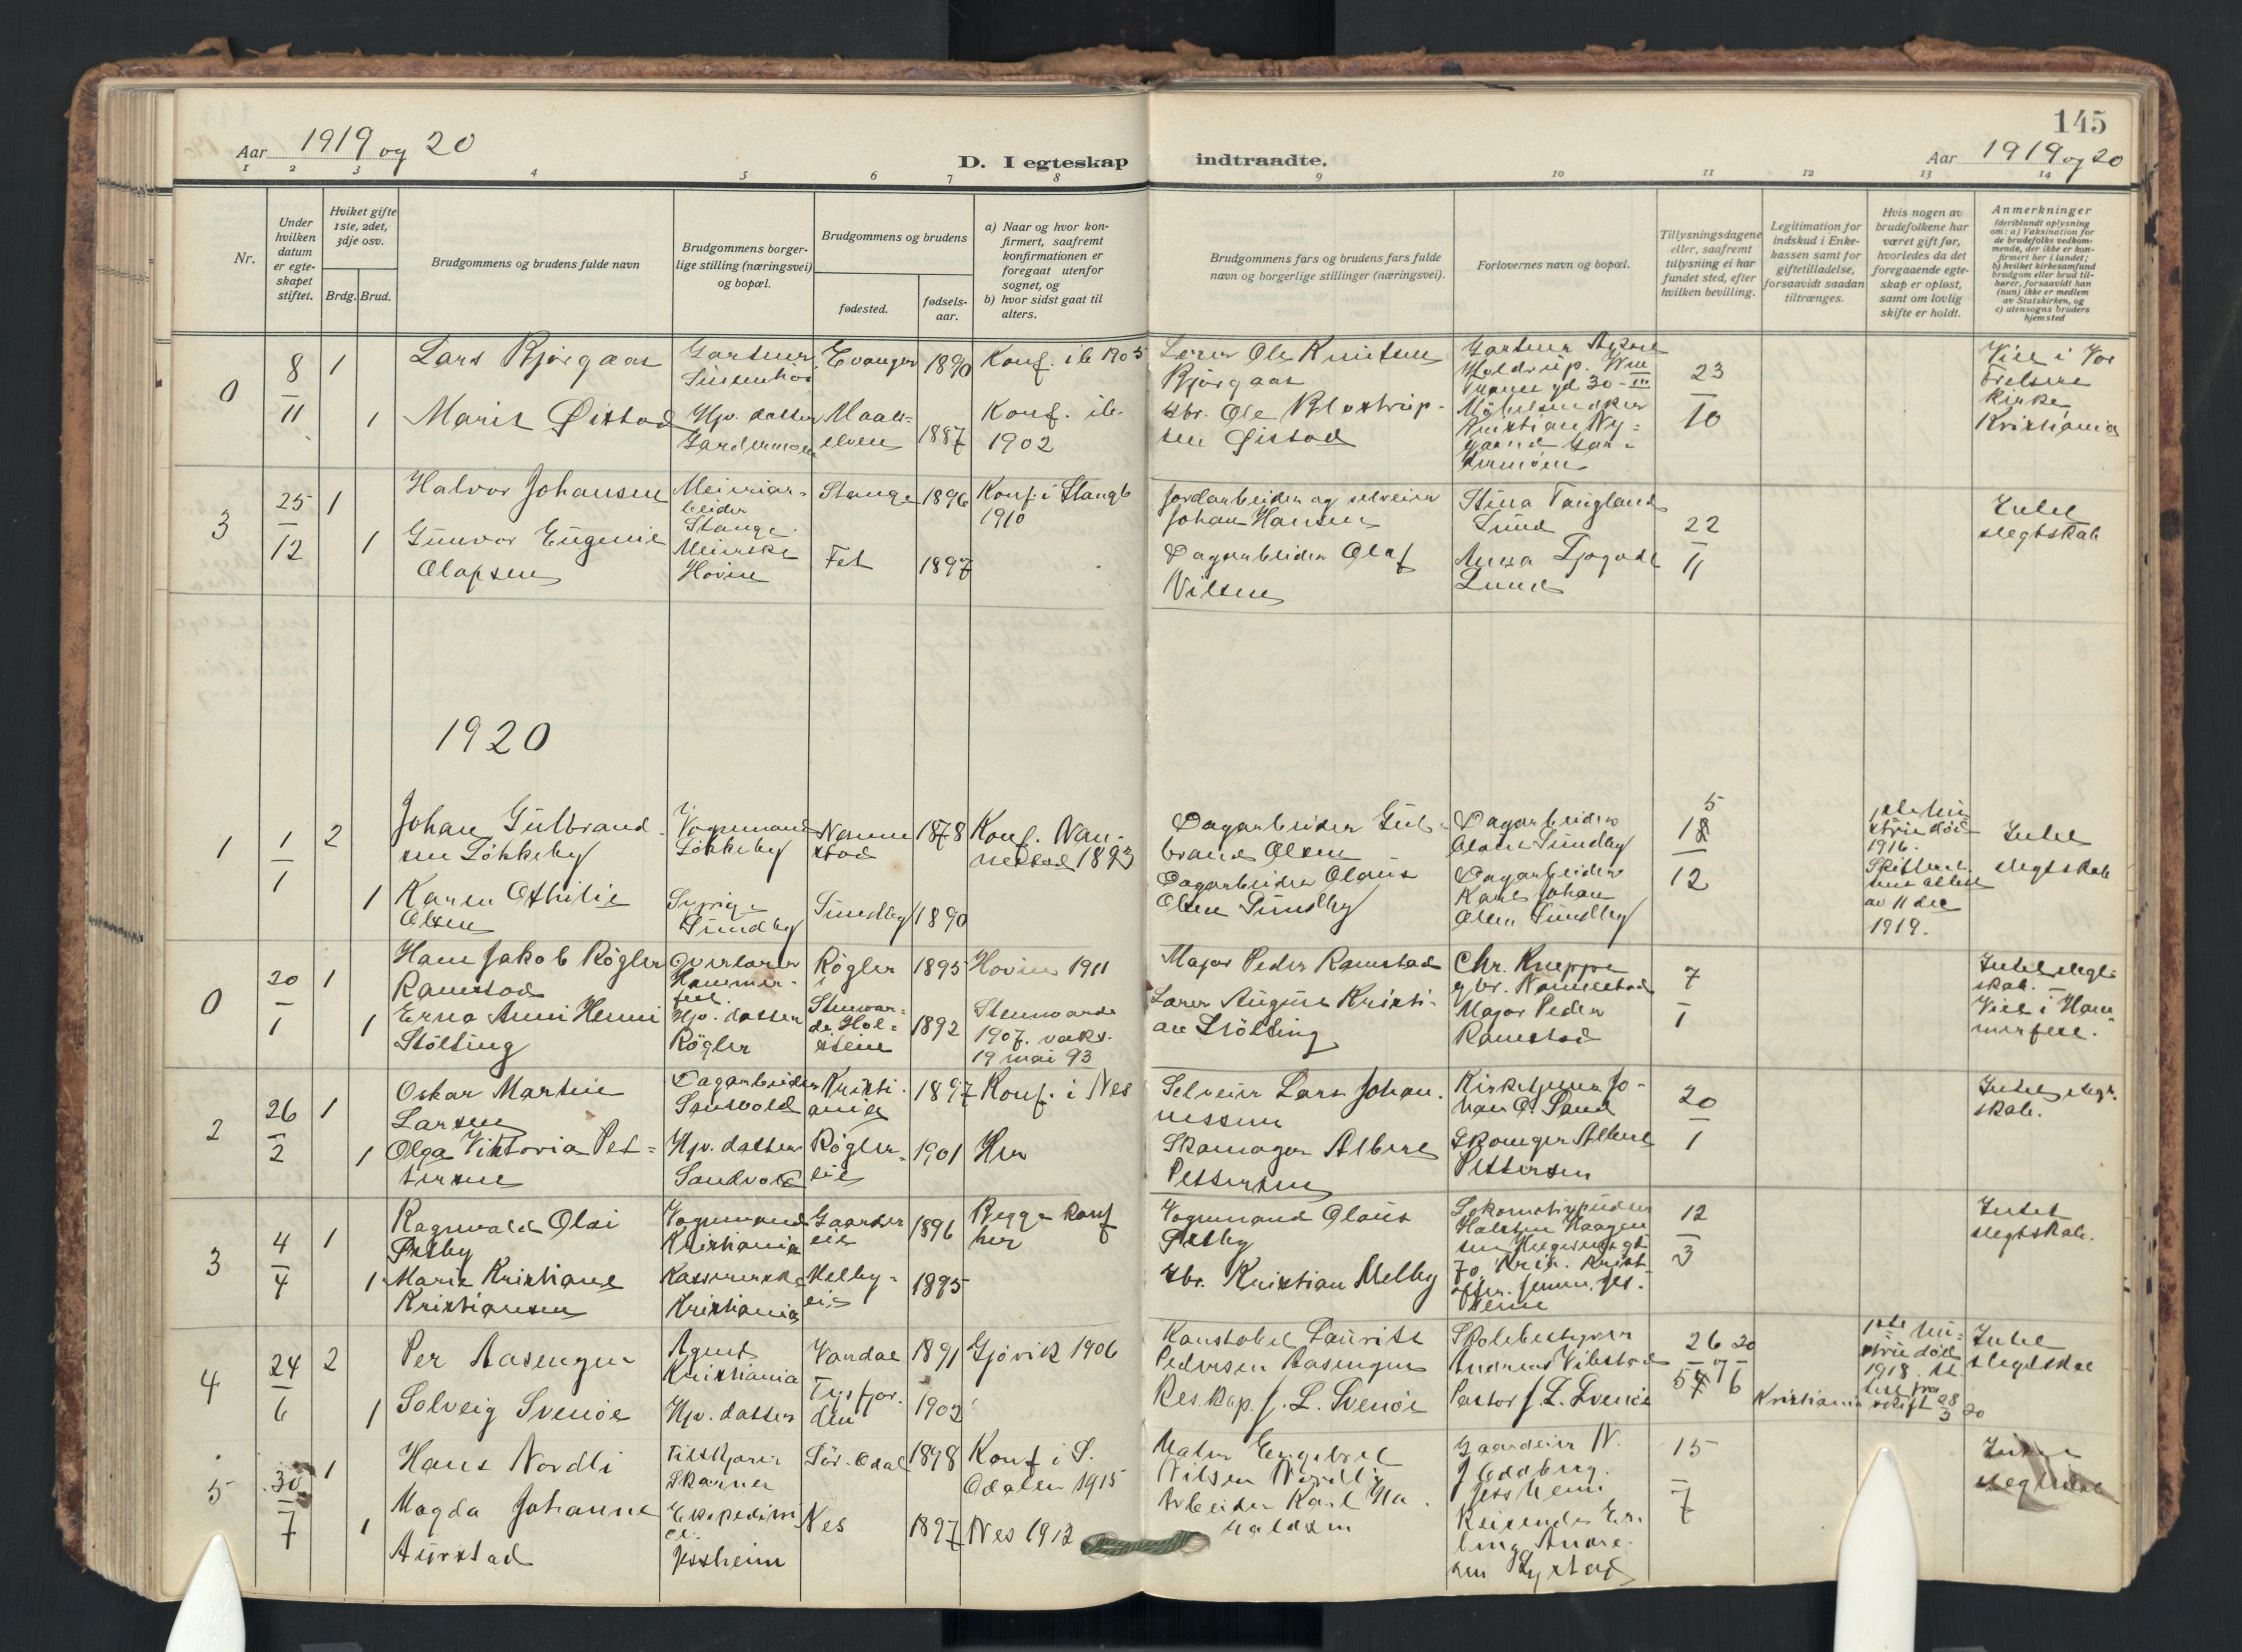 145
Aar 1919 og 20
D. I egteskap indtraadte.
Aar 1919 og 20
1 2 3 4 5 6 7 8 9 10 11 12 13 14
Nr.
Under hvilken datum er egteskapet stiftet.
Hviket gifte 1ste, 2det, 3dje osv.
Brdg. Brud.
Brudgommens og brudens fulde navn
Brudgommens borgerlige stilling (næringsvei) og bopæl.
Brudgommens og brudens
fødested.
fødselsaar.
a) Naar og hvor konfirmert, saafremt konfirmationen er foregaat utenfor sognet, og
b) hvor sidst gaat til alters.
Brudgommens fars og brudens fars fulde navn og borgerlige stillinger (næringsvei).
Forlovernes navn og bopæl.
Tillysningsdagene eller, saafremt tillysning ei har fundet sted, efter hvilken bevilling.
Legitimation for indskud i Enkekassen samt for giftetilladelse, forsaavidt saadan tiltrænges.
Hvis nogen av brudefolkene har været gift før, hvorledes da det foregaaende egteskap er opløst, samt om lovlig skifte er holdt.
Anmerkninger
(deriblandt oplysning om: a) Vaksination for de brudefolks vedkommende, der ikke er konfirmert her i landet; b) hvilket kirkesamfund brudgom eller brud tilhører, forsaavidt han (hun) ikke er medlem av Statskirken, og c) utensogns bruders hjemsted
0
8/11
1
Lars Bjørgaas
Gartner
Evanger
1890
Konf. ib 1905
Lærer Ole Knutsen
Bjørgaas
Gartner
23/10
Viet i Vor
Frelsers
Kirke
Kristiania
1
Marit Øistad
Hjv. datter
Gardermoen
Maalselven
1887
Konf. ib.
1902
Gbr. Ole
Øistad
Kristian Nygaard
3
25/12
1
Halvor Johansen
Meieriarbeider
Stange
Stange
1896
Konf. i Stange
1910
Jordarbeider og selveier
Johan Hansen
Stina Tangland
Lund
22/11
Intet
slegtskab
1
Gunvor Eugenie
Olafsen
Meierske
Hovin
Fet
1897
Dagarbeider Olaf
Nilsen
Anna
Lund
1920
1
1/1
2
Johan Gulbrandsen
Løkkeby
Vognmand
Løkkeby
Nannestad
1878
Konf. Nannestad 1893
Dagarbeider Gulbrand Olsen
Dagarbeider
Olaus Sundby
5
18/12
1ste hustru død
1916.
av 11 dec
1919.
Intet
slegtskab
1
Karen Othilie
Olsen
Sundby
Sundby
1890
Dagarbeider Olaus
Olsen Sundby
Dagarbeider
Karl Johan
Olsen Sundby
0
20/1
1
Hans Jakob Røgler
Ramstad
Overlærer
Hammerfest.
Røgler
1895
Hovin 1911
Major Peder Ramstad
Chr. Kneppe
gbr. Nannestad
7/1
Intet slegtskab. —
Viet i Hammerfest.
1
Erna Anni Henni
Stölting
Hjv. datter
Røgler
Holstein
1892
1907. vaks.
19 mai 93
Lærer August Kristian Stölting
Major Peder
Ramstad
2
26/2
1
Oskar Martin
Larsen
Dagarbeider
Sandvold
Kristiania
1897
Konf. i Nes
Selveier Lars Johannessen
Kirketjener Johan O. Sand
20/1
Intet slegtskab.
1
Olga Viktoria Pettersen
Hjv. datter
Sandvold
Røgler-
eie
1901
Her
Skomager Albert
Pettersen
Skomager Albert
Pettersen
3
4/4
1
Ragnvald Olai
Østby
Vognmand
Kristiania
Gaarder
eie
1896
Begge konf
her
Vognmand Olaus
Østby
Lokomotivpudser
Halsten Haagensen
12/3
Intet
slegtskab.
1
Marie Kristiane
Kristiansen
Kassererske
Kristiania
Melby-
eie
1895
Gbr. Kristian Melby
4
24/6
2
Per Aasengen
Agent
Kristiania
Vardal
1891
Gjøvik 1906
Konstabel Laurits
Pedersen Aasengen
Skolebestyrer
Andreas Vibstad
26 20
Kristiania
1ste hustru død
1918.
skift 28/3 20
Intet
slegtskab
1
Solveig Svenöe
Hjv. datter
Tysfjorden
1902
Res. kap. J. L. Svenöe
Pastor J. L. Svenöe
5
30/7
1
Hans Nordli
Skarnes
Sør-Odal
1898
Konf i S.
Odalen 1915
Maler Engebret
Nilsen Nordli
Gaardeier N.
Jessheim
15/7
Intet
slegtskab
1
Magda Johanne
Aurstad
Jessheim
Nes
1897
Nes 1912
Arbeider Karl
Reisende Erling